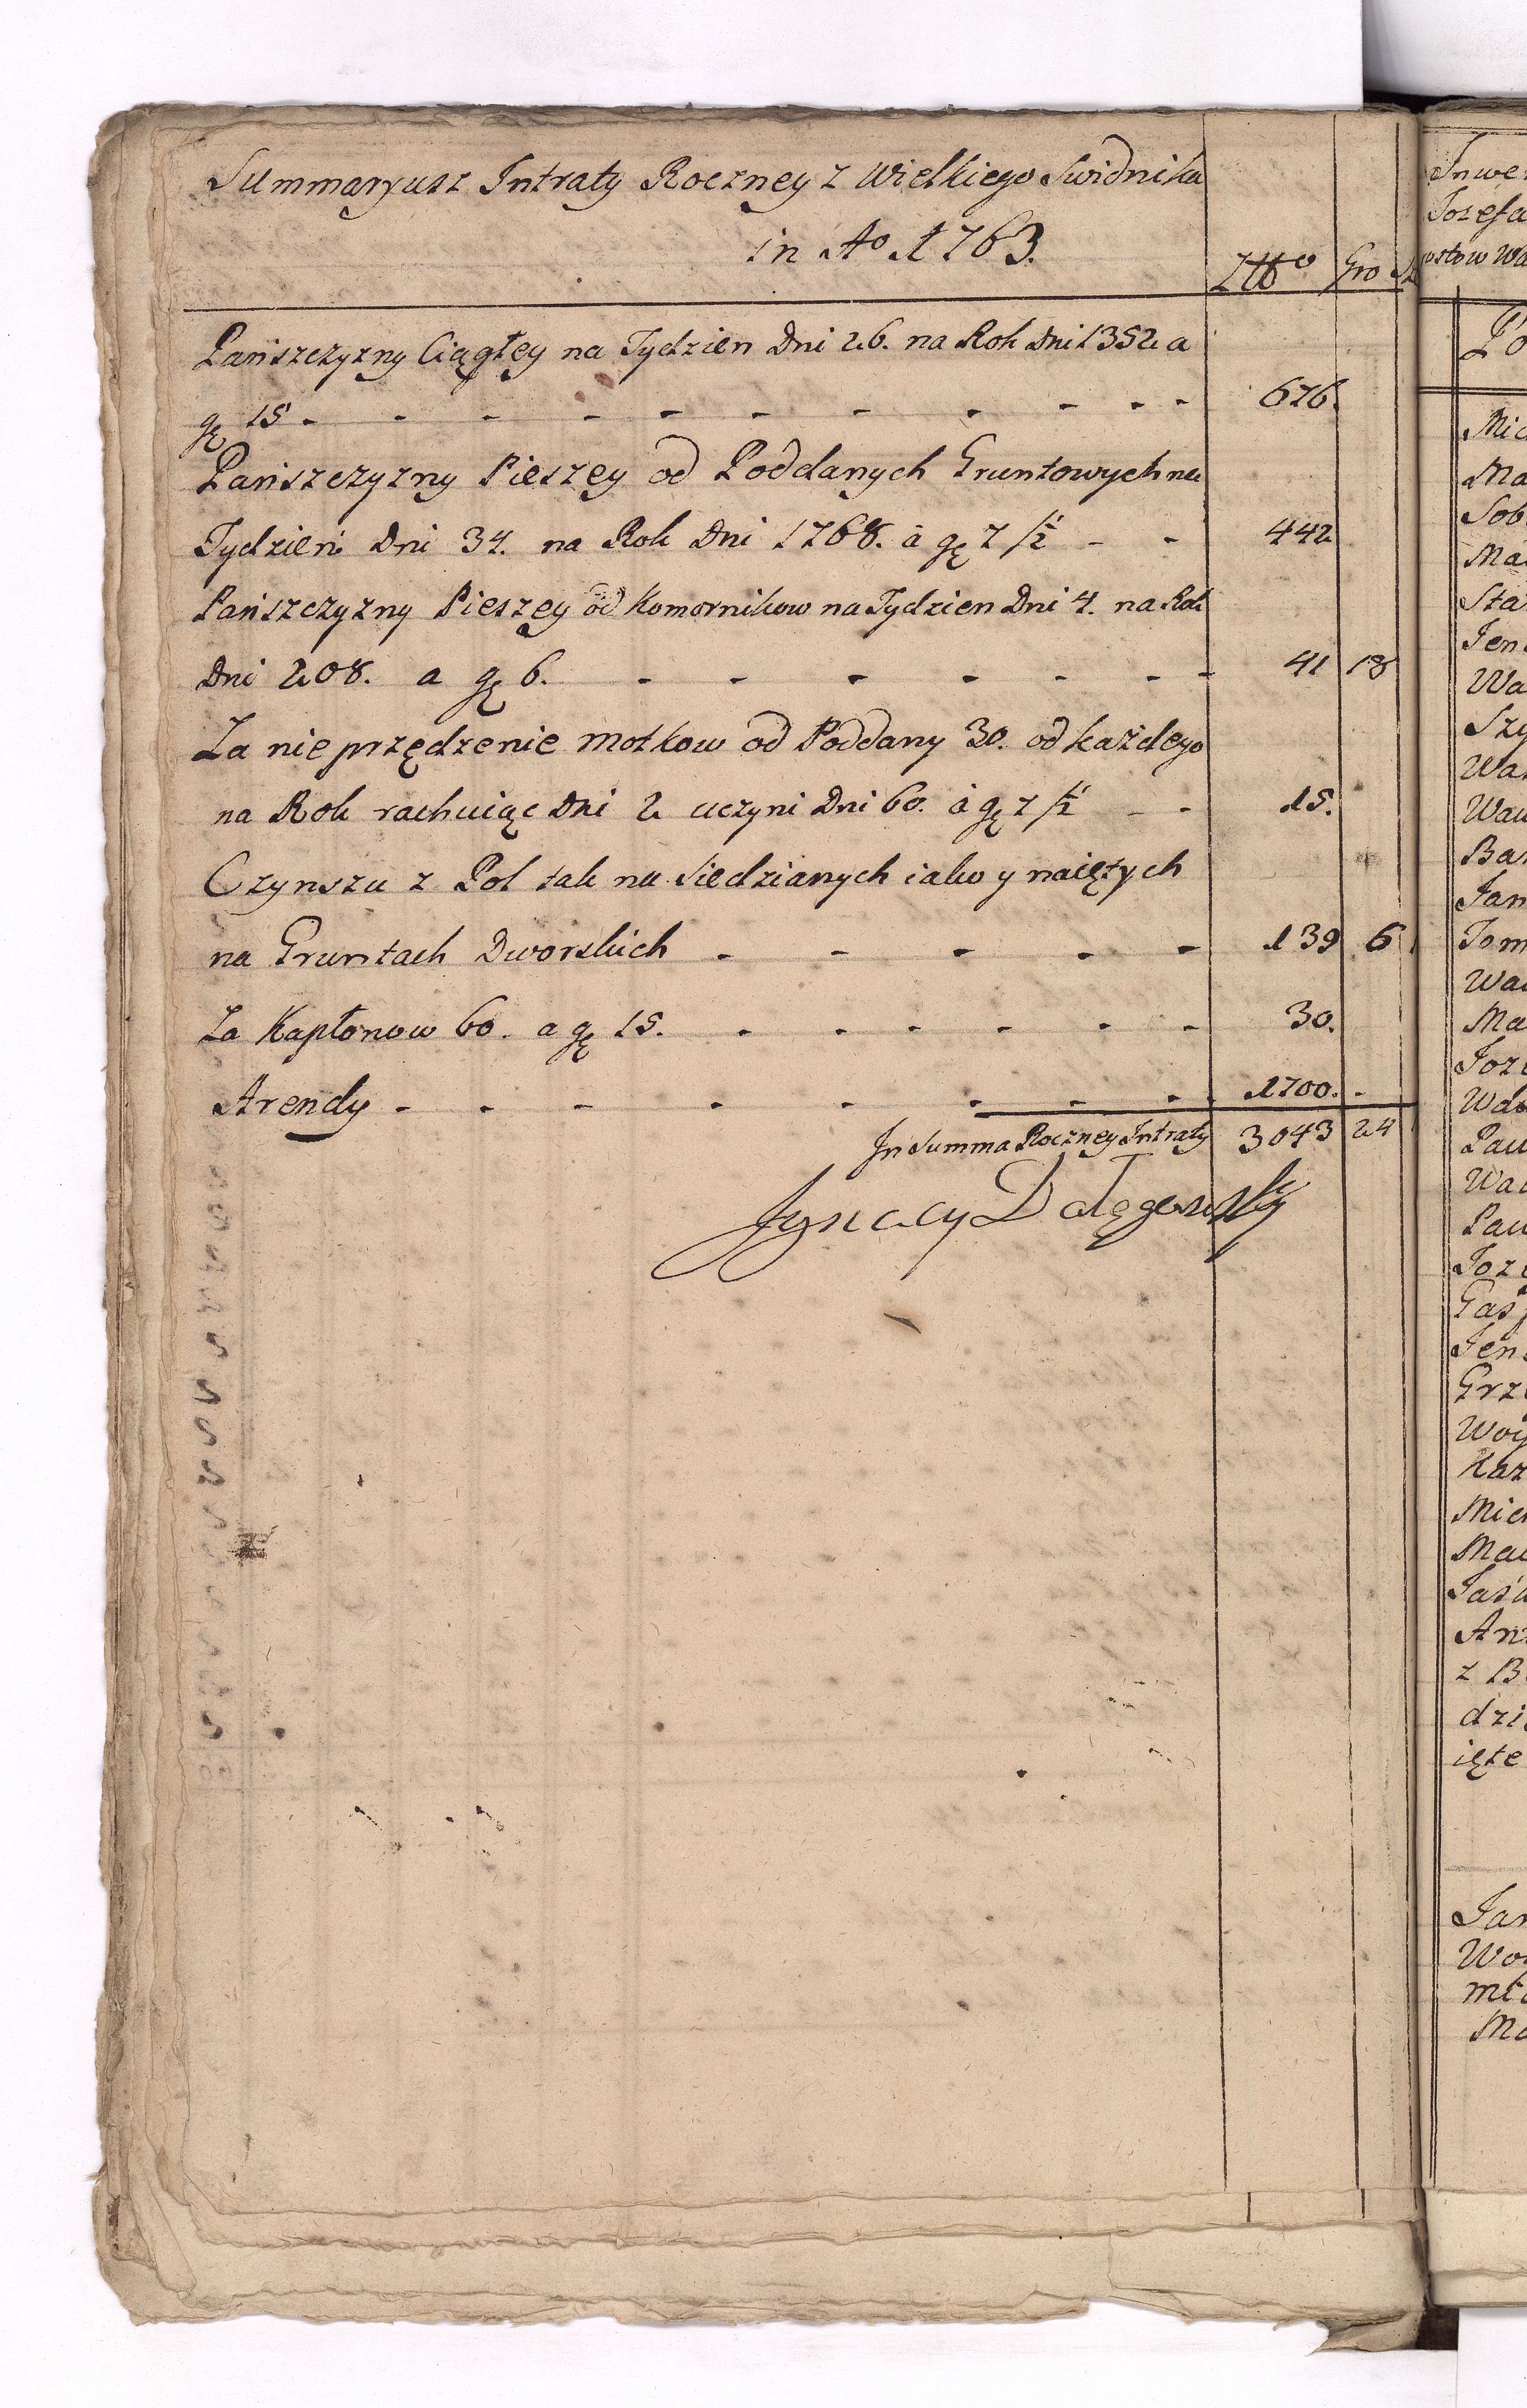 Summaryusz Intraty Roczney z Wielkiego Swidnika
in Ao 1763.
Złto Gro
Pańszczyzny Ciągłey na Tydzien Dni 26. na Rok Dni 1352 a
gę 15 - - - - - - - - - - - 676.
Pańszczyzny Pieszey od Poddanych Gruntowych na
Tydzień Dni 34. na Rok Dni 1768. à gę 7 1/2 - - 442
Pańszczyzny Pieszey od Komornikow na Tydzien Dni 4. na Rok
Dni 208. a gę 6. - - - - - - - 41 18
Za nie przędzenie motkow od Poddany 30. od każdego
na Rok rachuiąc Dni 2 uczyni Dni 60. à gę 7 1/2 - - 15.
Czynszu z Pol tak na Siedzianych iako y naiętych
na Gruntach Dworskich - - - - - 139 6
Za Kapłonow 60. a gę 15. - - - - - - 30.
Arendy - - - - - - - - 1700. -
In Summa Roczney Intraty 3043 24
Jgnacy Dołęgowsky
Inwe
Jozefa
ostow Wa
Mic
Ma
Sob
Ma
Sta
Jen
Wa
Szy
Wa
Waw
Bar
Jan
Tom
Wa
Ma
Joz
Wdo
Paw
Wa
Paw
Joz
Gasp
Jen
Grz
Woy
Kaz
Mic
Ma
Jaś
An
z B
dzi
ięte
Jan
Wo
mło
Ma